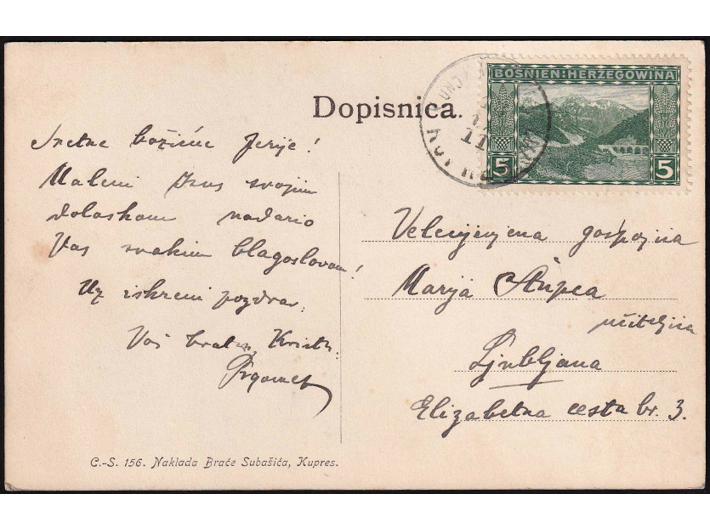 Dopisnica.
BOSNIEN-HERZEGOWINA
5 5
11
Sretne božićne ferije!
Maleni Isus svojim
dolaskom nadario
Vas svakim blagoslovom!
Uz iskreni pozdrav
Vaš brat
Velecijenjena gospojica
Marija
učiteljica
Ljubljana
Elizabetna cesta br. 3.
C.-S. 156. Naklada Braće Subašića, Kupres.